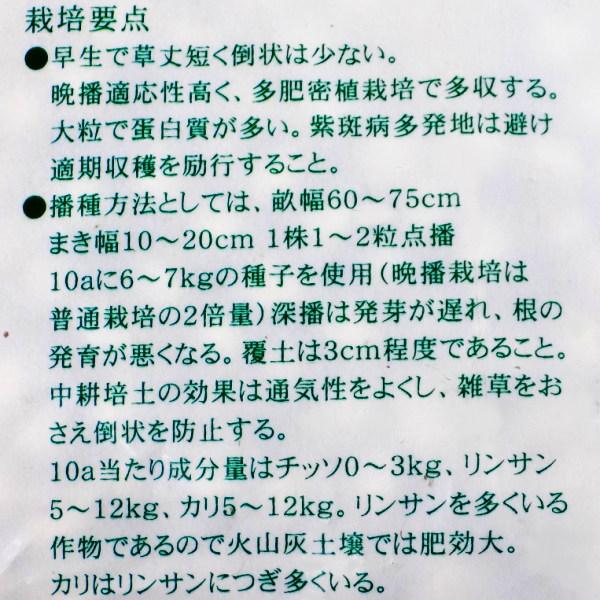 栽培要点
●早生で草丈短く倒状は少ない。
晩播適応性高く、多肥密植栽培で多収する。
大粒で蛋白質が多い。紫斑病多発地は避け
適期収穫を励行すること。
●播種方法としては、畝幅60～75cm
まき幅10～20cm 1株1～2粒点播
10aに6～7kgの種子を使用(晩播栽培は
普通栽培の2倍量)深播は発芽が遅れ、根の
発育が悪くなる。覆土は3cm程度であること。
中耕培土の効果は通気性をよくし、雑草をお
さえ倒状を防止する。
10a当たり成分量はチッソ0～3kg、リンサン
5～12kg、カリ5～12kg。リンサンを多くいる
作物であるので火山灰土壌では肥効大。
カリはリンサンにつぎ多くいる。